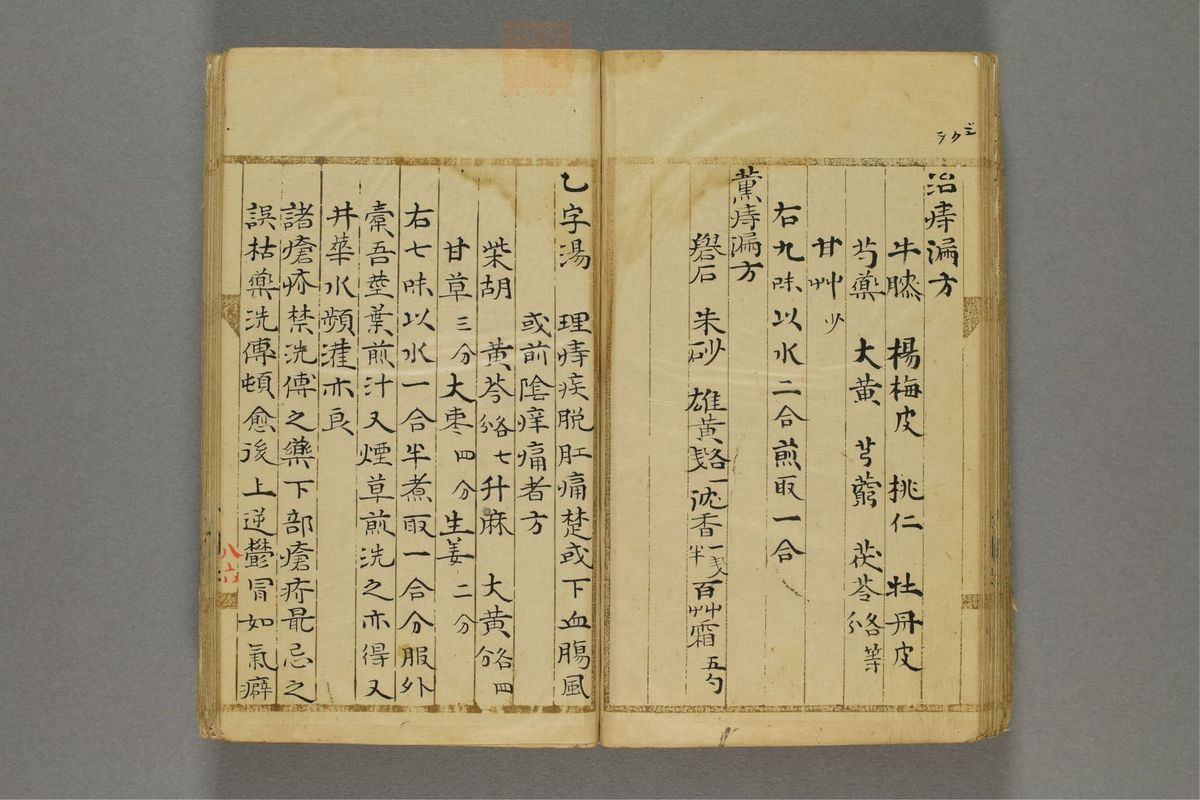 治痔漏方
牛膝 楊梅皮 挑仁 牡丹皮
芍藥 大黄 芎藭 茯苓各等分
甘艸少
右九味以水二合煎取一合
薫痔漏方
礜石 朱砂 雄黄各一戔 沈香一戔半 百艸霜五勺
乙字湯 理痔疾脱肛痛楚或下血腸風
或前陰痒痛者方
柴胡 黄芩各七分 升麻 大黄各四分
甘草三分 大枣四分 生姜二分
右七味以水一合半煮取一合分服外
橐吾莖葉煎汁又煙草煎洗之亦得又
井華水頻灌亦良
諸瘡疥禁洗傅之藥下部瘡疥最忌之
誤枯藥洗傅頓愈後上逆鬱冒如氣癖